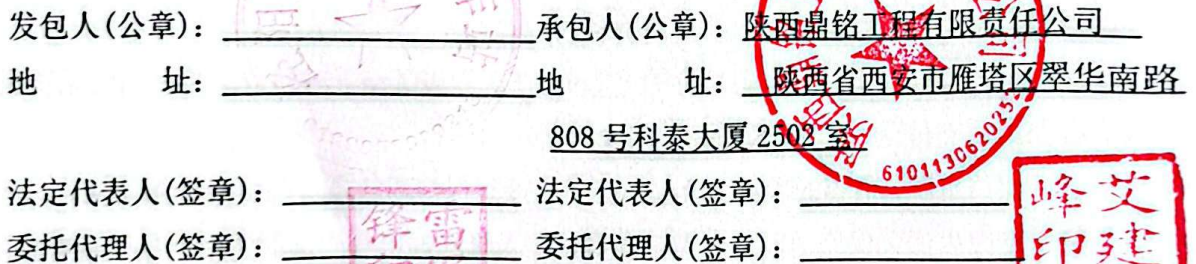 发包人(公章): 承包人(公章): 陕西鼎铭工程有限责任公司
地 址: 地 址: 陕西省西安市雁塔区翠华南路
808 号科泰大厦 2502 室
法定代表人(签章): 法定代表人(签章):
委托代理人(签章): 委托代理人(签章):
艾建
峰印
锋雷